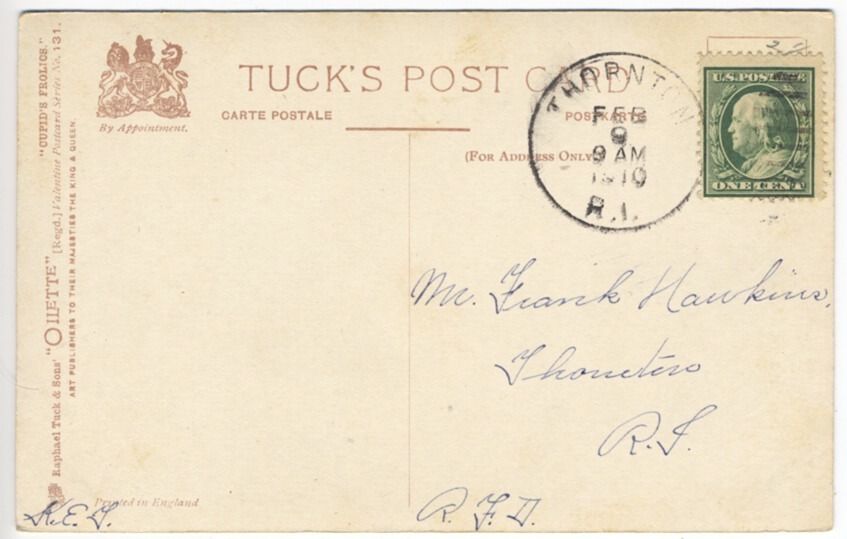 "CUPID'S FROLICS."
Raphael Tuck & Sons' "OILETTE" [Regd.] Valentine Postcard Series No. 131.
ART PUBLISHERS TO THEIR MAJESTIES THE KING & QUEEN.
By Appointment.
TUCK'S POST CARD
CARTE POSTALE
POSTKARTE
(FOR ADDRESS ONLY)
THORNTON
FEB
9
9 AM
1910
R.I.
U.S. POSTAGE
ONE CENT
Mr. Frank Hawkins,
R.I.
R. F. D.
Printed in England